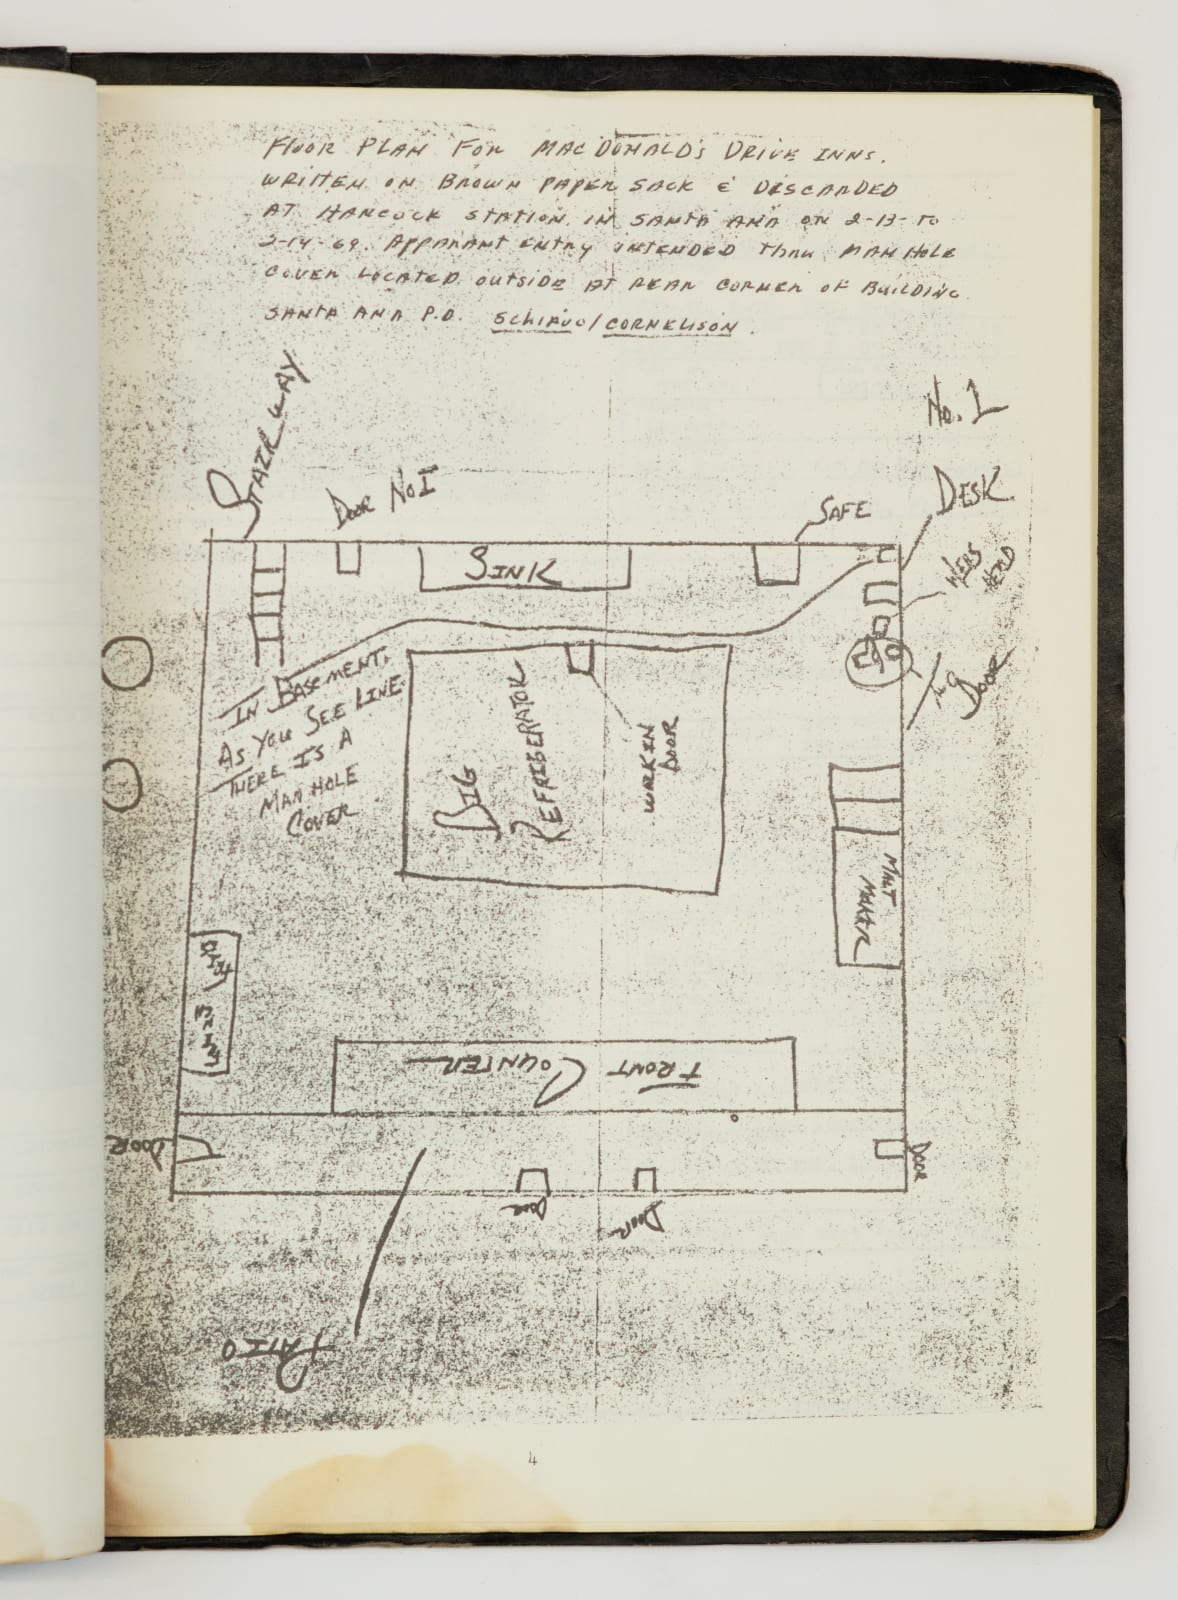 FLOOR PLAN FOR MAC DONALD'S DRIVE INNS.
WRITTEN ON BROWN PAPER SACK & DISCARDED
AT HANCOCK STATION IN SANTA ANA ON 2-13- TO
2-14-69. APPARANT ENTRY INTENDED THRU MAN HOLE
COVER LOCATED OUTSIDE AT REAR CORNER OF BUILDING.
SANTA ANA P.D. SCHIAVO/CORNELISON.
No. 1
STAIR WAY
DOOR No I
SAFE
DESK
SINK
DOOR
IN BASEMENT.
AS YOU SEE LINE
THERE IS A
MAN HOLE
COVER
BIG
REFRIGERATOR
WORK IN
DOOR
MALT
MAKER
FRONT COUNTER
DOOR
DOOR
DOOR
DOOR
PATIO
4